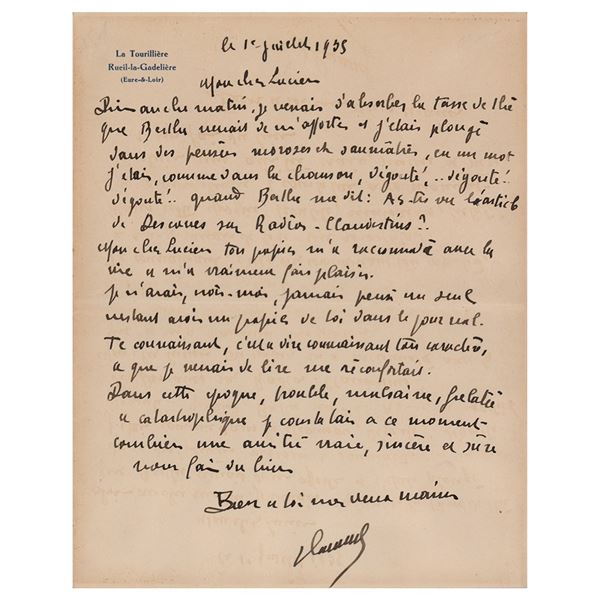 La Tourillière
Rueil-la-Gadelière
(Eure-&-Loir)
le 1er juillet 1935
Mon cher Lucien
Dimanche matin, je venais d'absorber la tasse de thé
que Berthe venait de m'apporter et j'étais plongé
dans des pensées moroses et saumâtres, en un mot
j'étais, comme dans la chanson, dégouté, .. dégouté ..
dégouté .. quand Berthe me dit : As-tu vu l'article
de Descaves sur Radios-Clandestins ?
Mon cher Lucien ton papier m'a raccommodé avec la
vie et m'a vraiment fait plaisir.
Je n'avais, vois-moi, jamais pensé un seul
instant avoir un papier de toi dans le journal.
Te connaissant, c'est à dire connaissant ton caractère,
ce que je venais de lire me réconfortait.
Dans cette époque, trouble, malsaine, frelatée
et catastrophique je constatais à ce moment
combien une amitié vraie, sincère et sûre
vous fait du bien
Bien à toi mon vieux